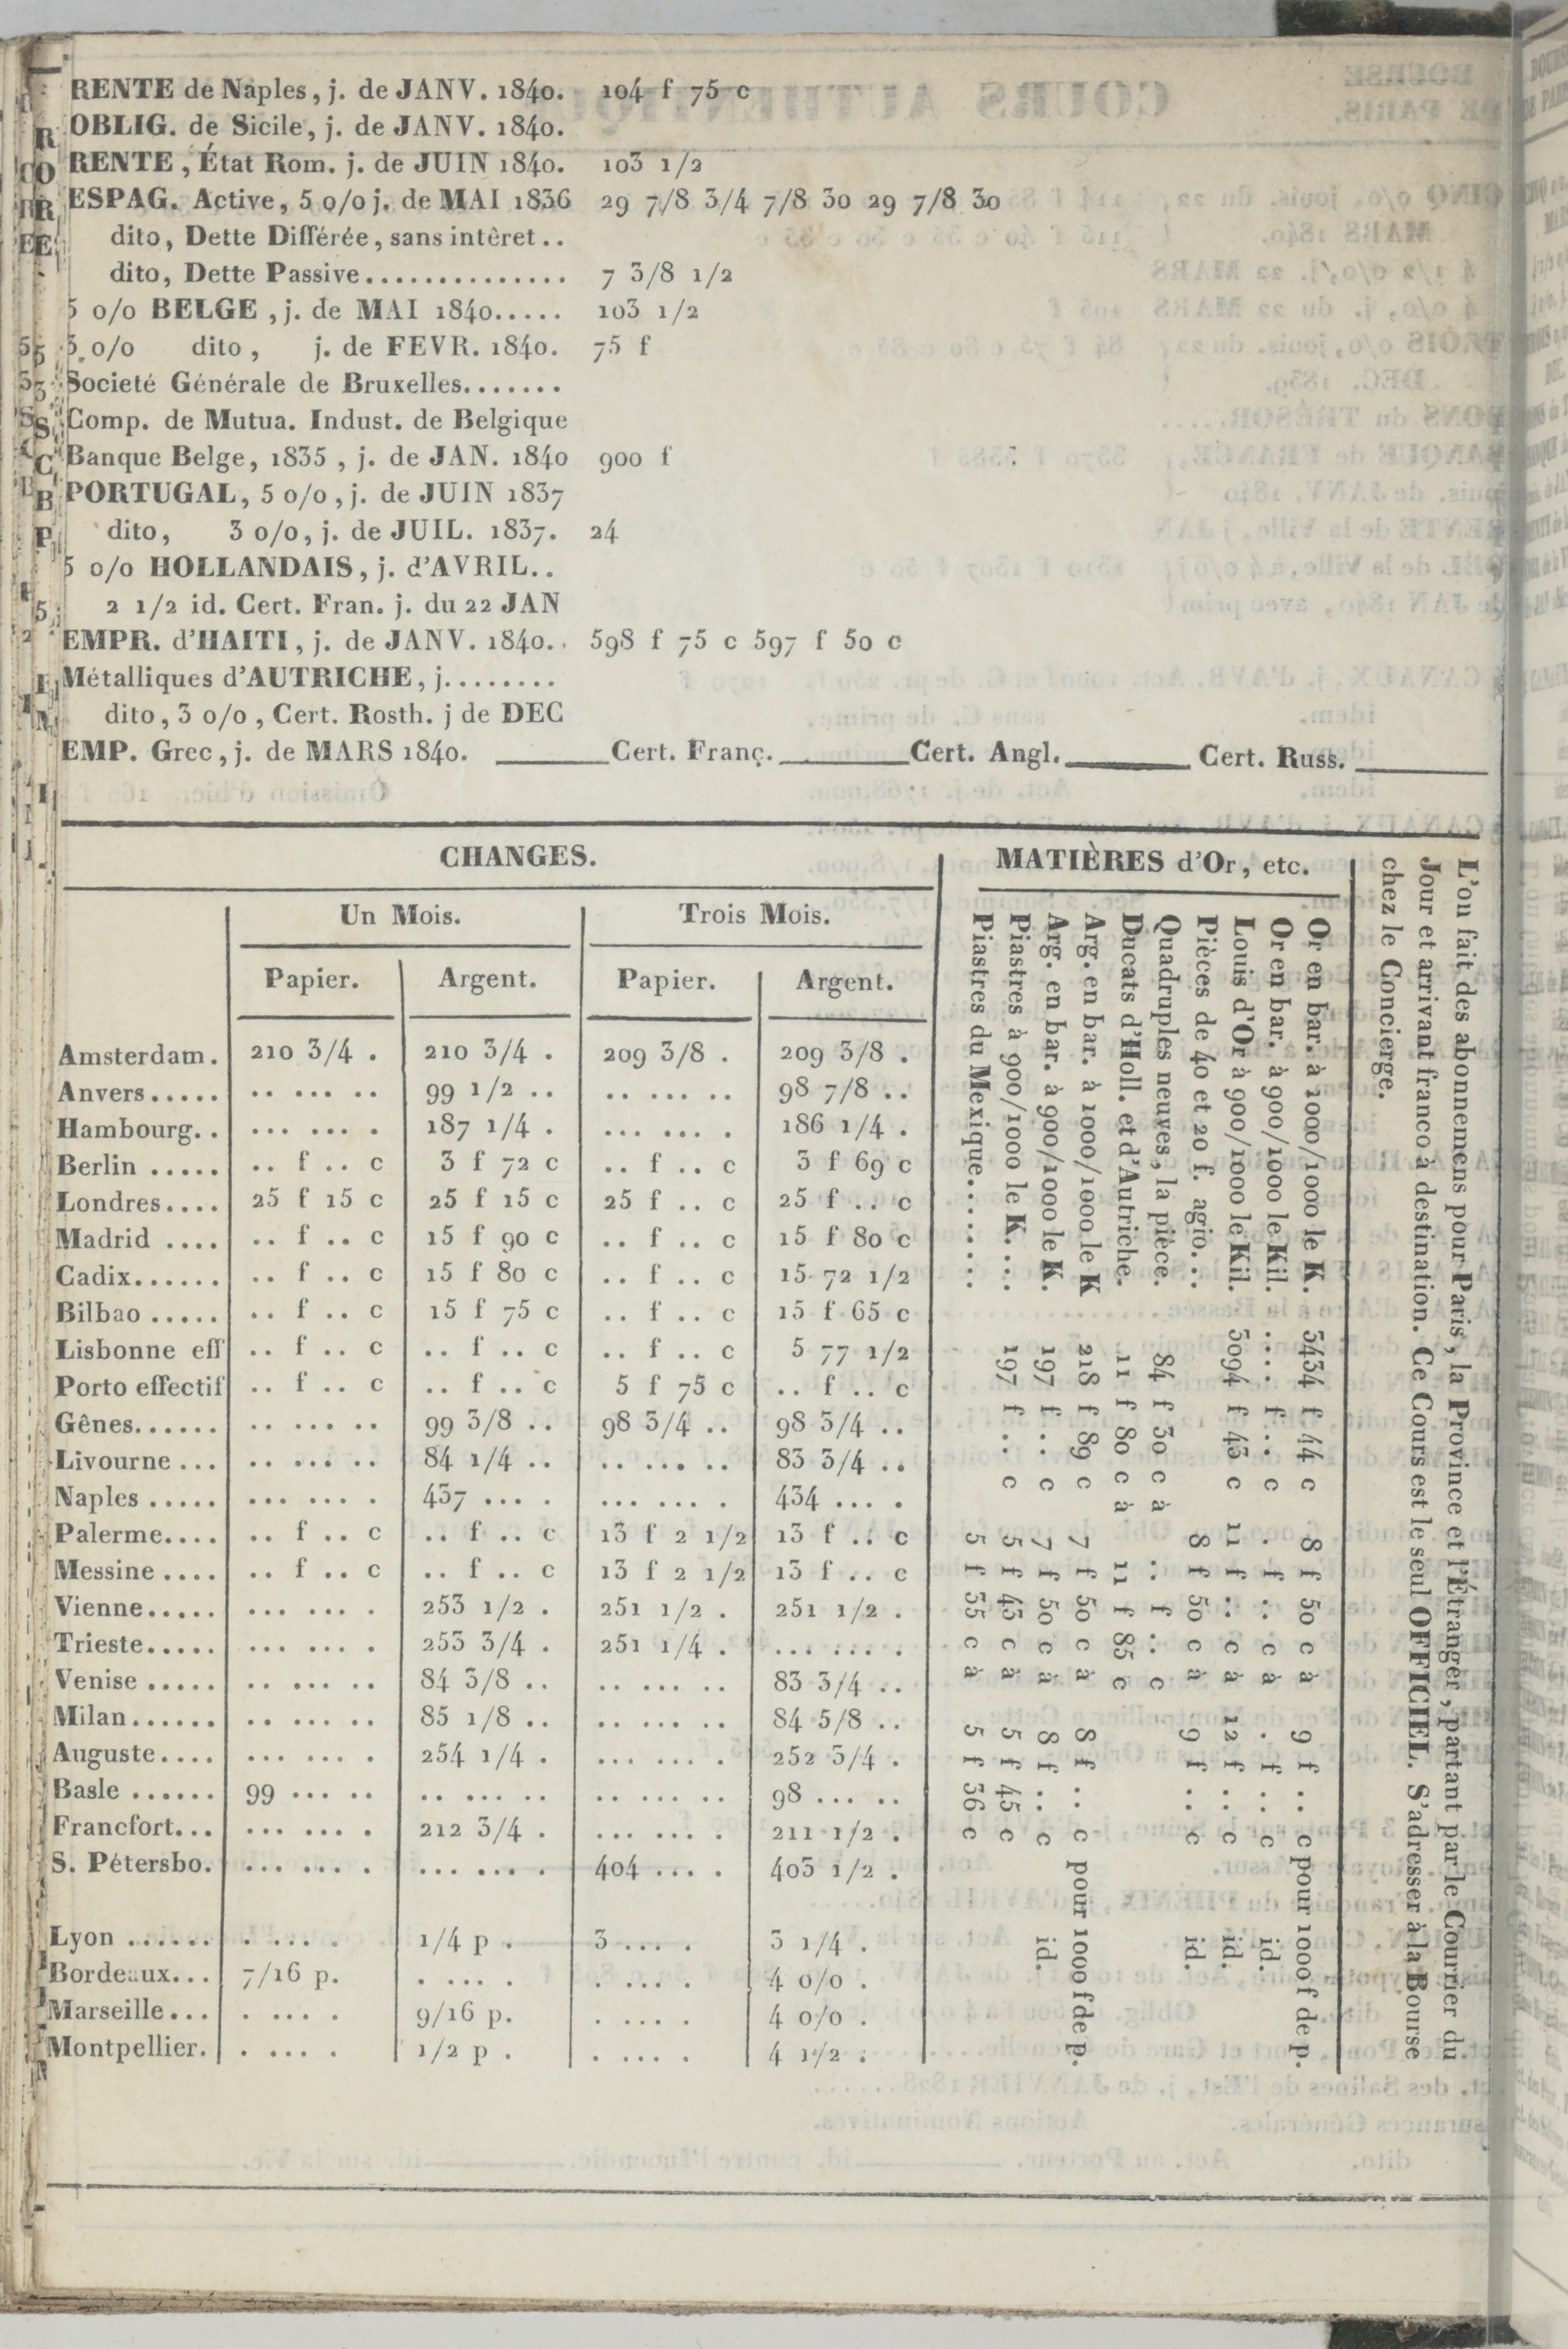 RENTE de Naples, j. de JANV. 1840. 104 f 75 c
OBLIG. de Sicile, j. de JANV. 1840.
RENTE, État Rom. j. de JUIN 1840. 103 1/2
ESPAG. Active, 5 o/o j. de MAI 1836 29 7/8 3/4 7/8 30 29 7/8 30
dito, Dette Différée, sans intêret..
dito, Dette Passive.............. 7 3/8 1/2
5 o/o BELGE, j. de MAI 1840..... 103 1/2
3 o/o dito, j. de FEVR. 1840. 75 f
Societé Générale de Bruxelles.......
Comp. de Mutua. Indust. de Belgique
Banque Belge, 1835, j. de JAN. 1840 900 f
PORTUGAL, 5 o/o, j. de JUIN 1837
dito, 3 o/o, j. de JUIL. 1837. 24
5 o/o HOLLANDAIS, j. d'AVRIL..
2 1/2 id. Cert. Fran. j. du 22 JAN
EMPR. d'HAITI, j. de JANV. 1840.. 598 f 75 c 597 f 50 c
Métalliques d'AUTRICHE, j........
dito, 3 o/o, Cert. Rosth. j de DEC
EMP. Grec, j. de MARS 1840. ______ Cert. Franç. ______ Cert. Angl. ______ Cert. Russ. ______
CHANGES.
Un Mois. Trois Mois.
Papier. Argent. Papier. Argent.
Amsterdam. 210 3/4 . 210 3/4 . 209 3/8 . 209 3/8 .
Anvers..... .. ... .. 99 1/2 .. .. ... .. 98 7/8 ..
Hambourg.. ... ... . 187 1/4 . ... ... . 186 1/4 .
Berlin ..... .. f .. c 3 f 72 c .. f .. c 3 f 69 c
Londres.... 25 f 15 c 25 f 15 c 25 f .. c 25 f .. c
Madrid .... .. f .. c 15 f 90 c .. f .. c 15 f 80 c
Cadix...... .. f .. c 15 f 80 c .. f .. c 15 72 1/2
Bilbao ..... .. f .. c 15 f 75 c .. f .. c 15 f 65 c
Lisbonne eff .. f .. c .. f .. c .. f .. c 5 77 1/2
Porto effectif .. f .. c .. f .. c 5 f 75 c .. f .. c
Gênes...... .. ... .. 99 3/8 .. 98 3/4 .. 98 3/4 ..
Livourne ... .. ... .. 84 1/4 .. .. ... .. 83 3/4 ..
Naples ..... ... ... . 437 ... . ... ... . 434 ... .
Palerme.... .. f .. c .. f .. c 13 f 2 1/2 13 f .. c
Messine .... .. f .. c .. f .. c 13 f 2 1/2 13 f .. c
Vienne..... ... ... . 253 1/2 . 251 1/2 . 251 1/2 .
Trieste..... ... ... . 253 3/4 . 251 1/4 . ... ... .
Venise ..... .. ... .. 84 3/8 .. .. ... .. 83 3/4 ..
Milan...... .. ... .. 85 1/8 .. .. ... .. 84 5/8 ..
Auguste.... ... ... . 254 1/4 . ... ... . 252 3/4 .
Basle ...... 99 ... .. .. ... .. .. ... .. 98 ... ..
Francfort... ... ... . 212 3/4 . ... ... . 211 1/2 .
S. Pétersbo. ... ... . ... ... . 404 ... . 403 1/2 .
Lyon ...... . ... . 1/4 p . 3 ... . 3 1/4 .
Bordeaux... 7/16 p. . ... . . ... . 4 o/o .
Marseille... . ... . 9/16 p. . ... . 4 o/o .
Montpellier. . ... . 1/2 p . . ... . 4 1/2 .
MATIÈRES d'Or, etc.
Or en bar. à 1000/1000 le K. 3434 f 44 c 8 f 50 c à 9 f .. c pour 1000 f de p.
Or en bar. à 900/1000 le Kil. .... f .. c . f .. c à . f .. c id.
Louis d'Or à 900/1000 le Kil. 3094 f 43 c 11 f .. c à 12 f .. c id.
Pièces de 40 et 20 f. agio... 8 f 50 c à 9 f .. c id.
Quadruples neuves, la pièce. 84 f 30 c à .. f .. c
Ducats d'Holl. et d'Autriche. 11 f 80 c à 11 f 85 c
Arg. en bar. à 1000/1000 le K 218 f 89 c 7 f 50 c à 8 f .. c pour 1000 f de p.
Arg. en bar. à 900/1000 le K. 197 f .. c 7 f 50 c à 8 f .. c id.
Piastres à 900/1000 le K.... 197 f .. c 5 f 43 c à 5 f 45 c
Piastres du Mexique....... 5 f 35 c à 5 f 36 c
L'on fait des abonnemens pour Paris, la Province et l'Étranger, partant par le Courrier du
Jour et arrivant franco à destination. Ce Cours est le seul OFFICIEL. S'adresser à la Bourse
chez le Concierge.